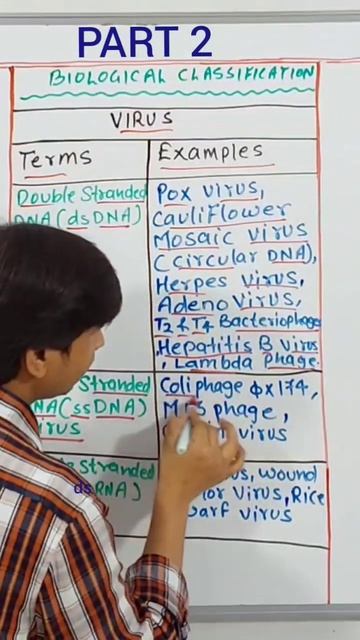 PART 2
BIOLOGICAL CLASSIFICATION
VIRUS
Terms
Examples
Double Stranded
DNA (dsDNA)
Pox virus,
Cauliflower
Mosaic virus
(circular DNA),
Herpes virus,
Adeno virus,
T2 & T4 Bacteriophage
, Hepatitis B virus
, Lambda phage
Stranded
(ssDNA)
Coliphage ϕ x 174,
phage,
virus
Stranded
dsRNA)
, wound
virus, Rice
virus